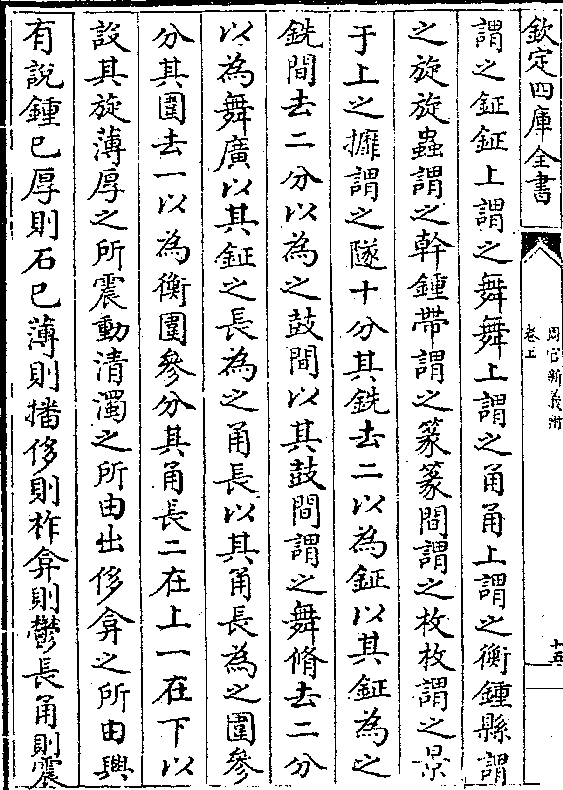 欽定四庫全書
周官新義附
卷上
十五
謂之鉦鉦上謂之舞舞上謂之甬甬上謂之衡鍾縣謂
之旋旋蟲謂之幹鍾帶謂之篆篆間謂之枚枚謂之景
于上之攠謂之隧十分其銑去二以為鉦以其鉦為之
銑間去二分以為之鼓間以其鼓間謂之舞脩去二分
以為舞廣以其鉦之長為之甬長以其甬長為之圍參
分其圍去一以為衡圍參分其甬長二在上一在下以
設其旋薄厚之所震動清濁之所由出侈弇之所由興
有説鍾已厚則石已薄則播侈則柞弇則鬱長甬則震